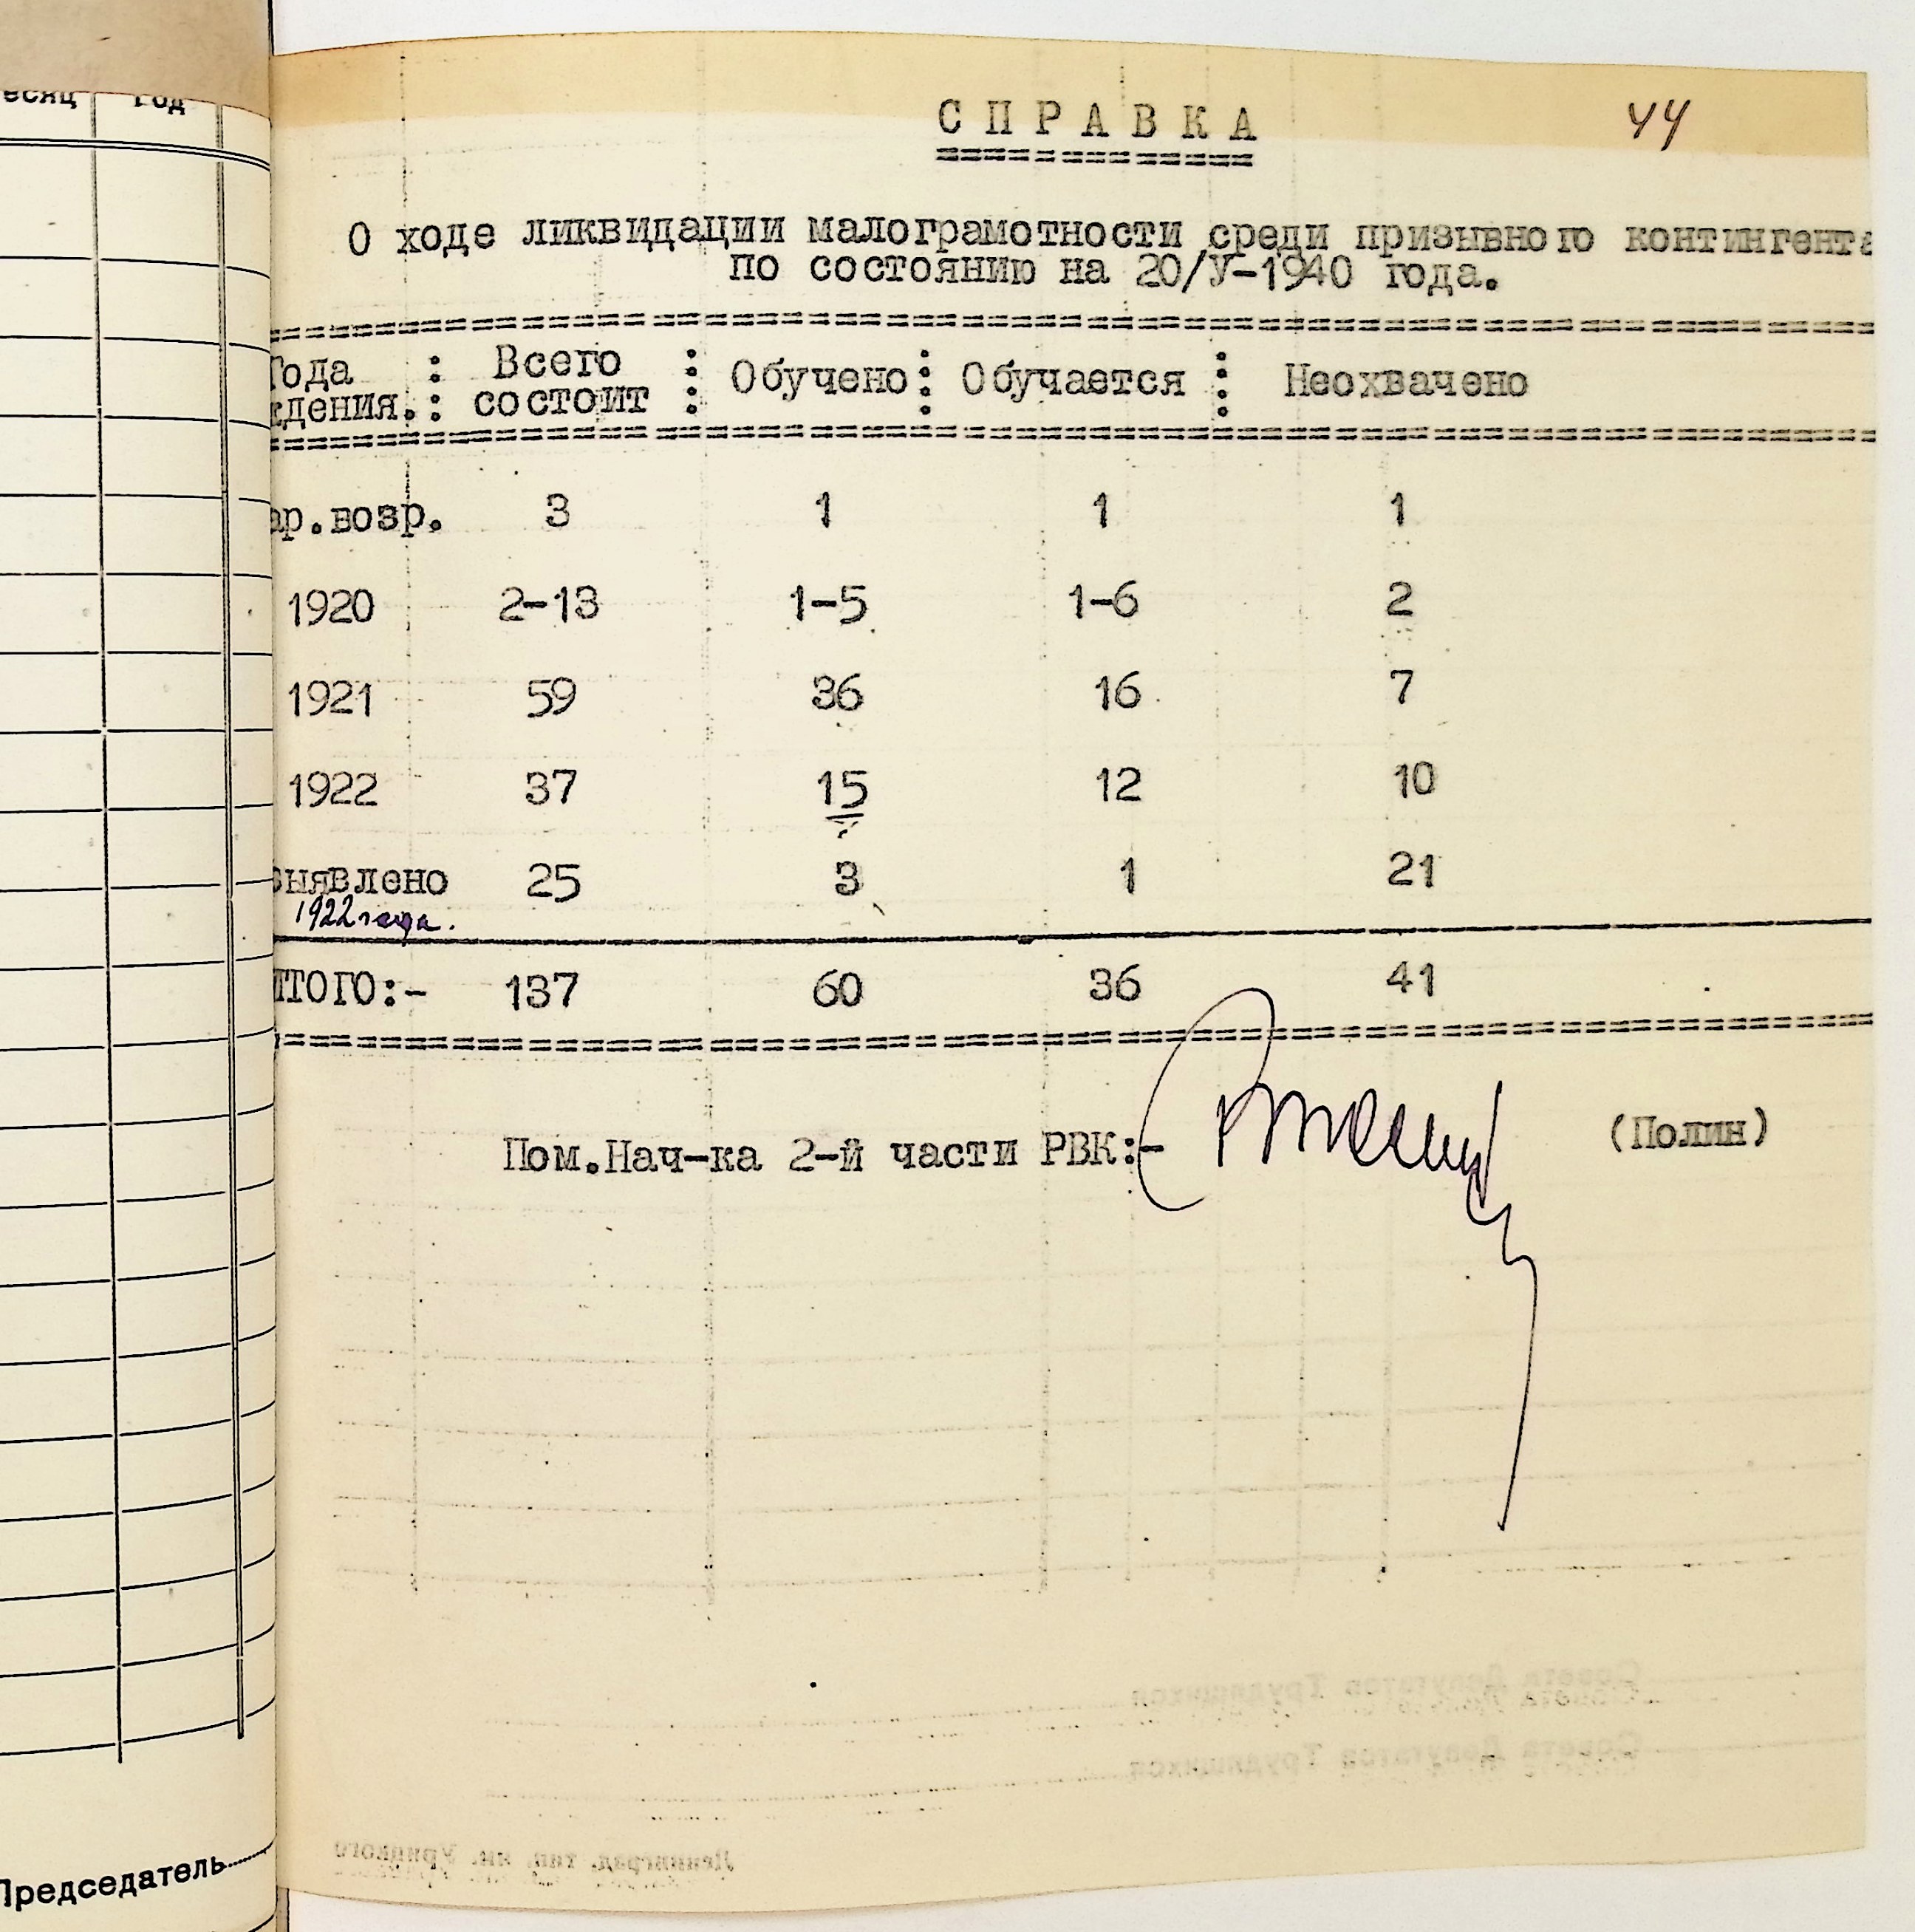 есяц год
44
СПРАВКА
О ходе ликвидации малограмотности среди призывного контингента
по состоянию на 20/У-1940 года.
Года : Всего : Обучено : Обучается : Неохвачено
ждения. : состоит :
ар.возр. 3 1 1 1
1920 2-13 1-5 1-6 2
1921 59 36 16 7
1922 37 15 12 10
выявлено 25 3 1 21
1922 года.
ИТОГО:- 137 60 36 41
Пом.Нач-ка 2-й части РВК:- (Полин)
Совета Депутатов Трудящихся
Совета Депутатов Трудящихся
Ленинград, тип. им. Урицкого
Председатель